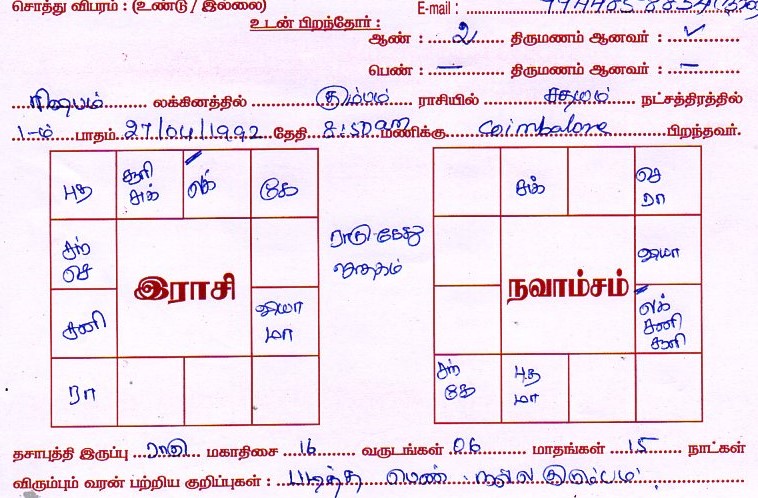 சொத்து விபரம் : (உண்டு / இல்லை) E-mail :
உடன் பிறந்தோர் :
ஆண் : 2 திருமணம் ஆனவர் : ✓
பெண் : — திருமணம் ஆனவர் : —
ரிஷபம் லக்கினத்தில் கும்பம் ராசியில் சதயம் நட்சத்திரத்தில்
1-ம் பாதம் 27/04/1992 தேதி 8:50 am மணிக்கு Coimbatore பிறந்தவர்.
புத சூரி சுக் லக் கே
சந் செ
இராசி
சனி வியா மா
ரா
ராகு கேது ஜாதகம்
சுக் செ ரா
வியா
நவாம்சம்
லக் சனி சூரி
சந் கே புத மா
தசாபுத்தி இருப்பு ராகு மகாதிசை 16 வருடங்கள் 06 மாதங்கள் 15 நாட்கள்
விரும்பும் வரன் பற்றிய குறிப்புகள் : படித்த பெண் நல்ல குடும்பம்